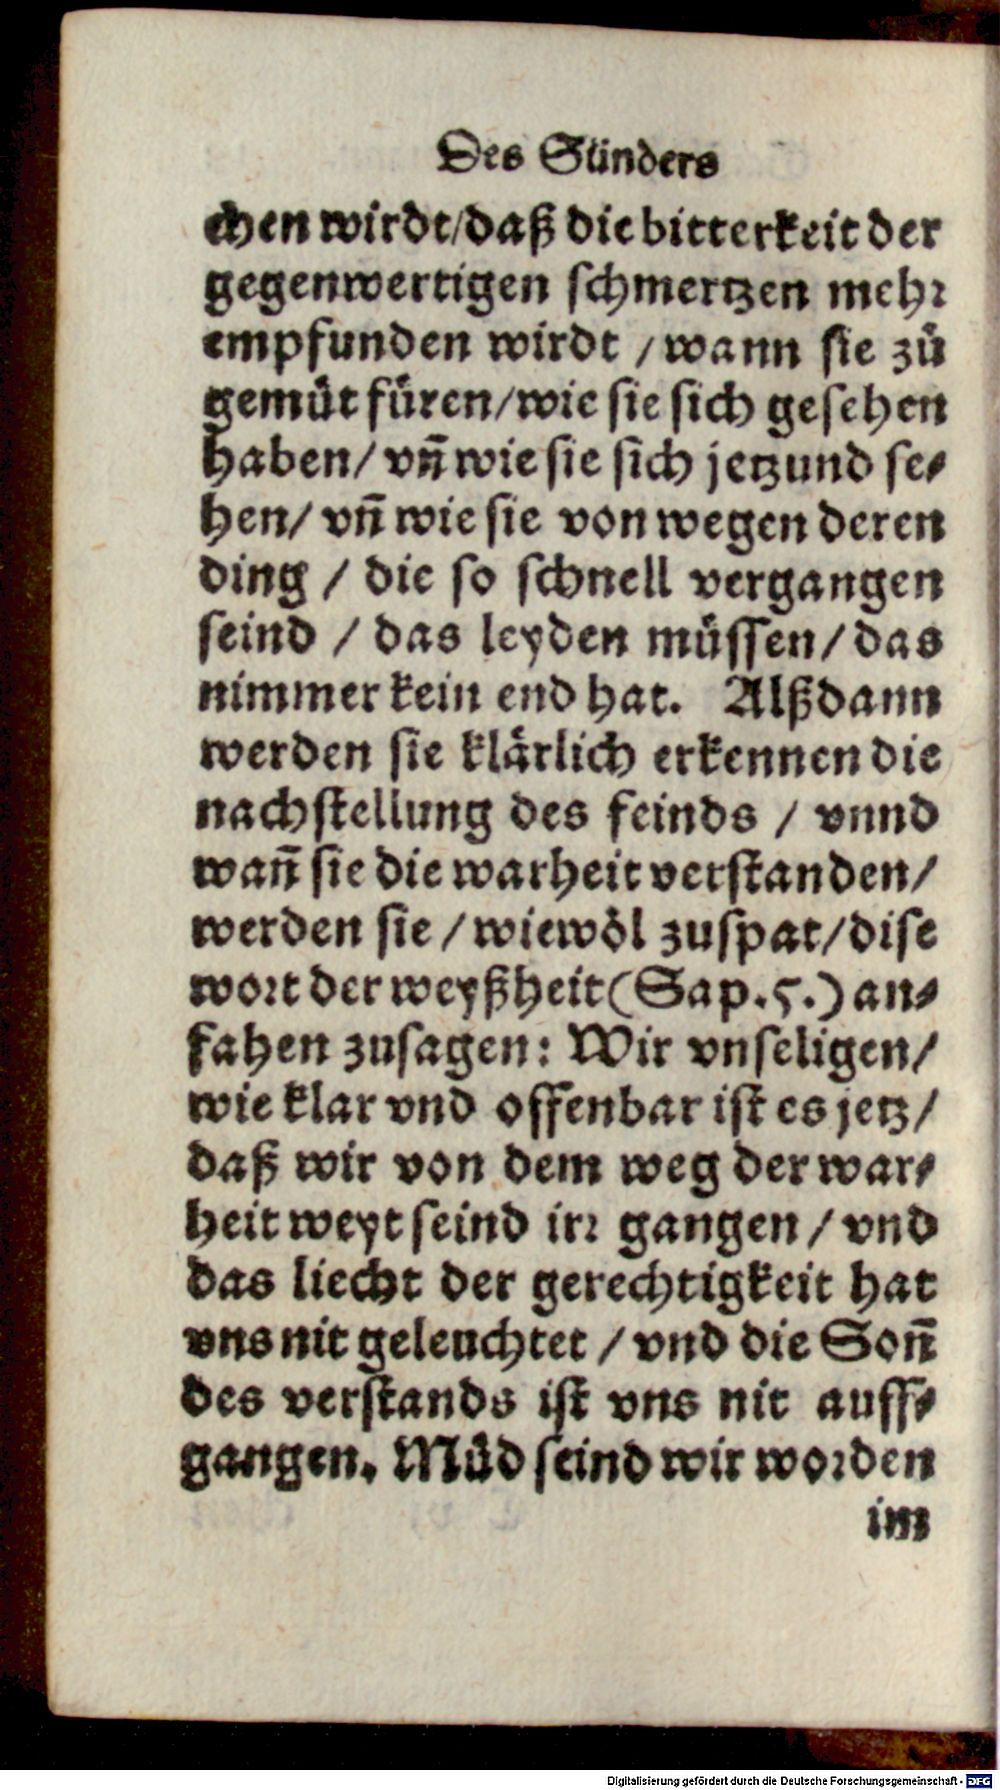 Des Sünders
chen wirdt/daß die bitterkeit der
gegenwertigen schmertzen mehr
empfunden wirdt / wann sie zů
gemüt füren/wie sie sich gesehen
haben/ vñ wie sie sich jetzund se-
hen/ vñ wie sie von wegen deren
ding / die so schnell vergangen
seind / das leyden müssen/ das
nimmer kein end hat. Alßdann
werden sie klärlich erkennen die
nachstellung des feinds / vnnd
wañ sie die warheit verstanden/
werden sie / wiewol zuspat/dise
wort der weyßheit (Sap.5.) an-
fahen zusagen: Wir vnseligen/
wie klar vnd offenbar ist es jetz/
daß wir von dem weg der war-
heit weyt seind irr gangen / vnd
das liecht der gerechtigkeit hat
vns nit geleuchtet / vnd die Soñ
des verstands ist vns nit auff-
gangen. Müd seind wir worden
im
Digitalisierung gefördert durch die Deutsche Forschungsgemeinschaft - DFG